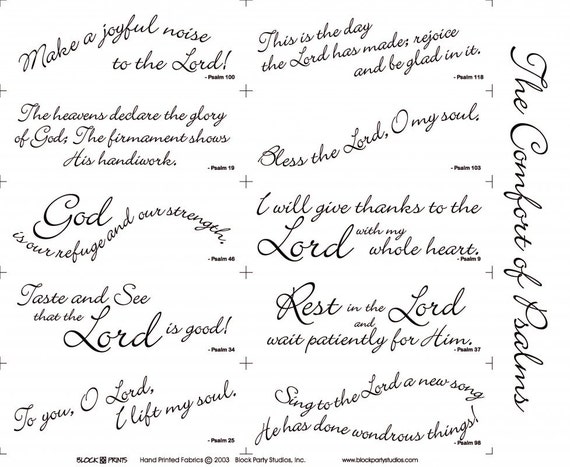 Make a joyful noise
to the Lord!
- Psalm 100
This is the day
the Lord has made; rejoice
and be glad in it.
- Psalm 118
The heavens declare the glory
of God; The firmament shows
His handiwork.
- Psalm 19
Bless the Lord, O my soul.
- Psalm 103
God
is our refuge and our strength.
- Psalm 46
I will give thanks to the
Lord with my
whole heart.
- Psalm 9
Taste and See
that the
Lord is good!
- Psalm 34
Rest in the Lord
and
wait patiently for Him.
- Psalm 37
To you, O Lord,
I lift my soul.
- Psalm 25
Sing to the Lord a new song
He has done wondrous things!
- Psalm 98
The Comfort of Psalms
BLOCK PRINTS Hand Printed Fabrics © 2003 Block Party Studios, Inc. www.blockpartystudios.com